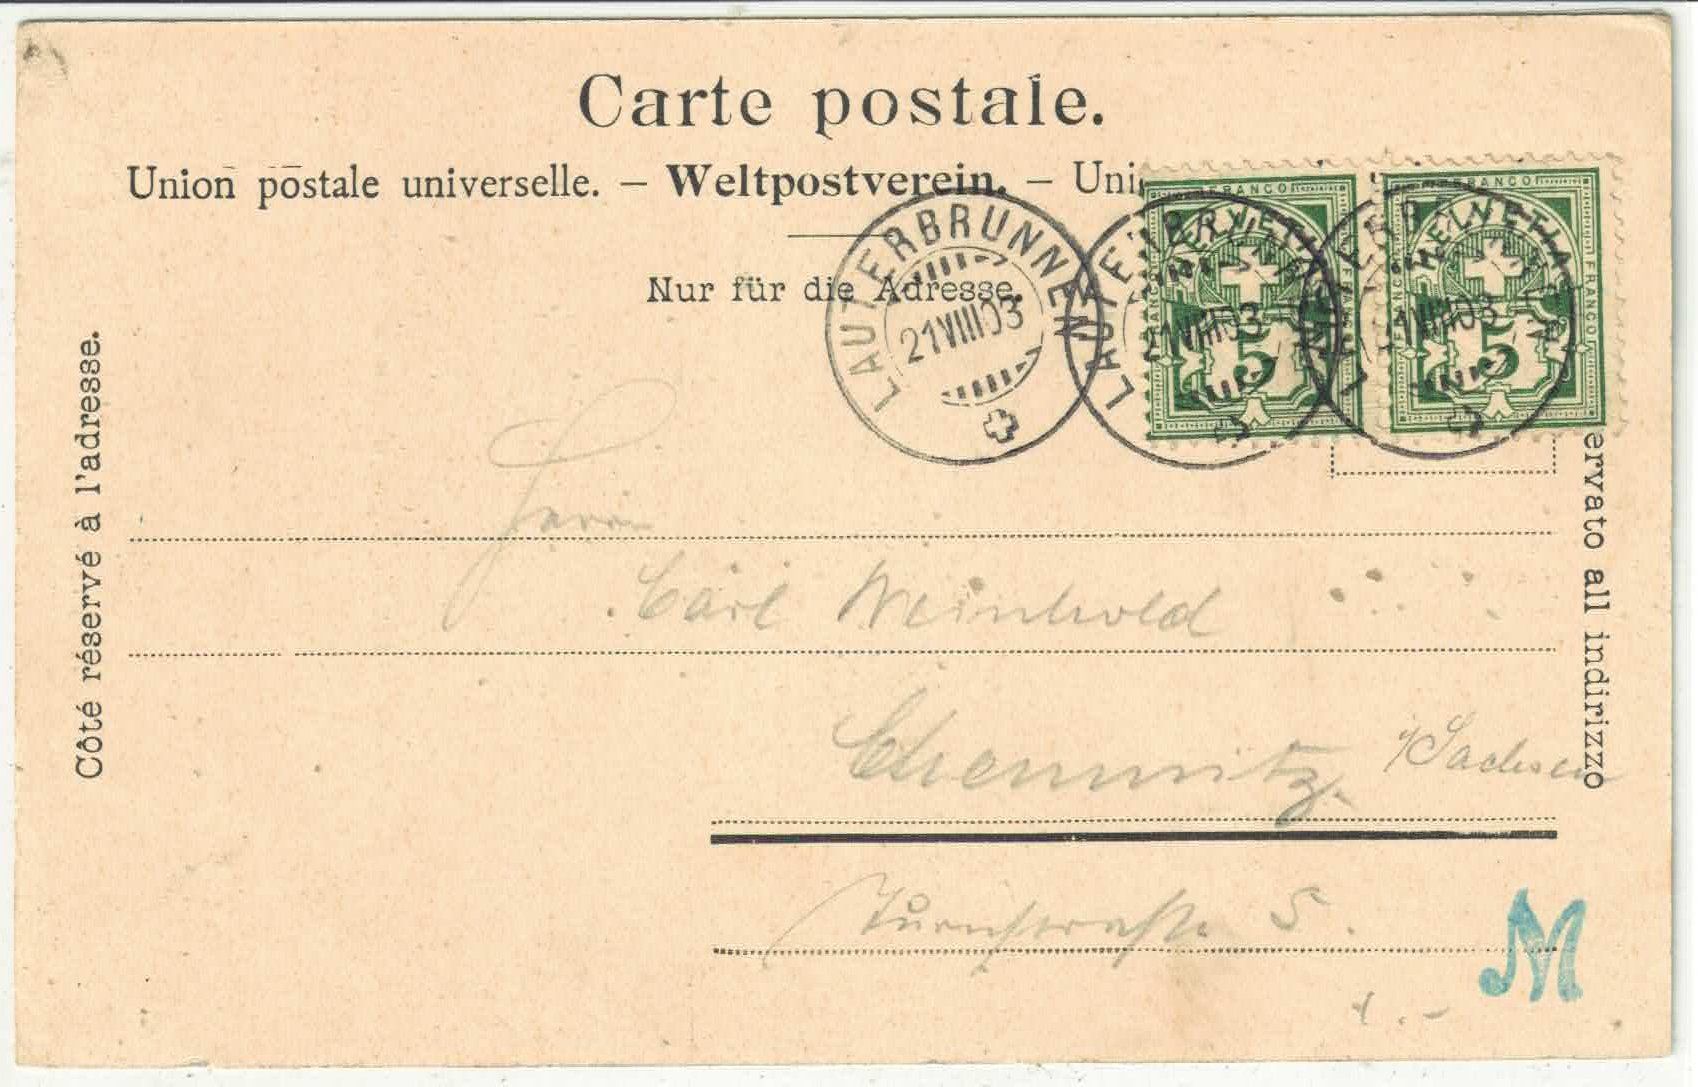 Carte postale.
Union postale universelle. – Weltpostverein. – Uni
Nur für die Adresse.
LAUTERBRUNNEN
21 VIII 03
LAUTERBRUNNEN
21 VIII 03
LAUTERBRUNNEN
21 VIII 03
FRANCO
HELVETIA
FRANCO
FRANCO
5
FRANCO
HELVETIA
FRANCO
FRANCO
5
Côté réservé à l'adresse.
ervato all indirizzo
Herrn
Carl Weinhold
Chemnitz i/Sachsen
5.
M